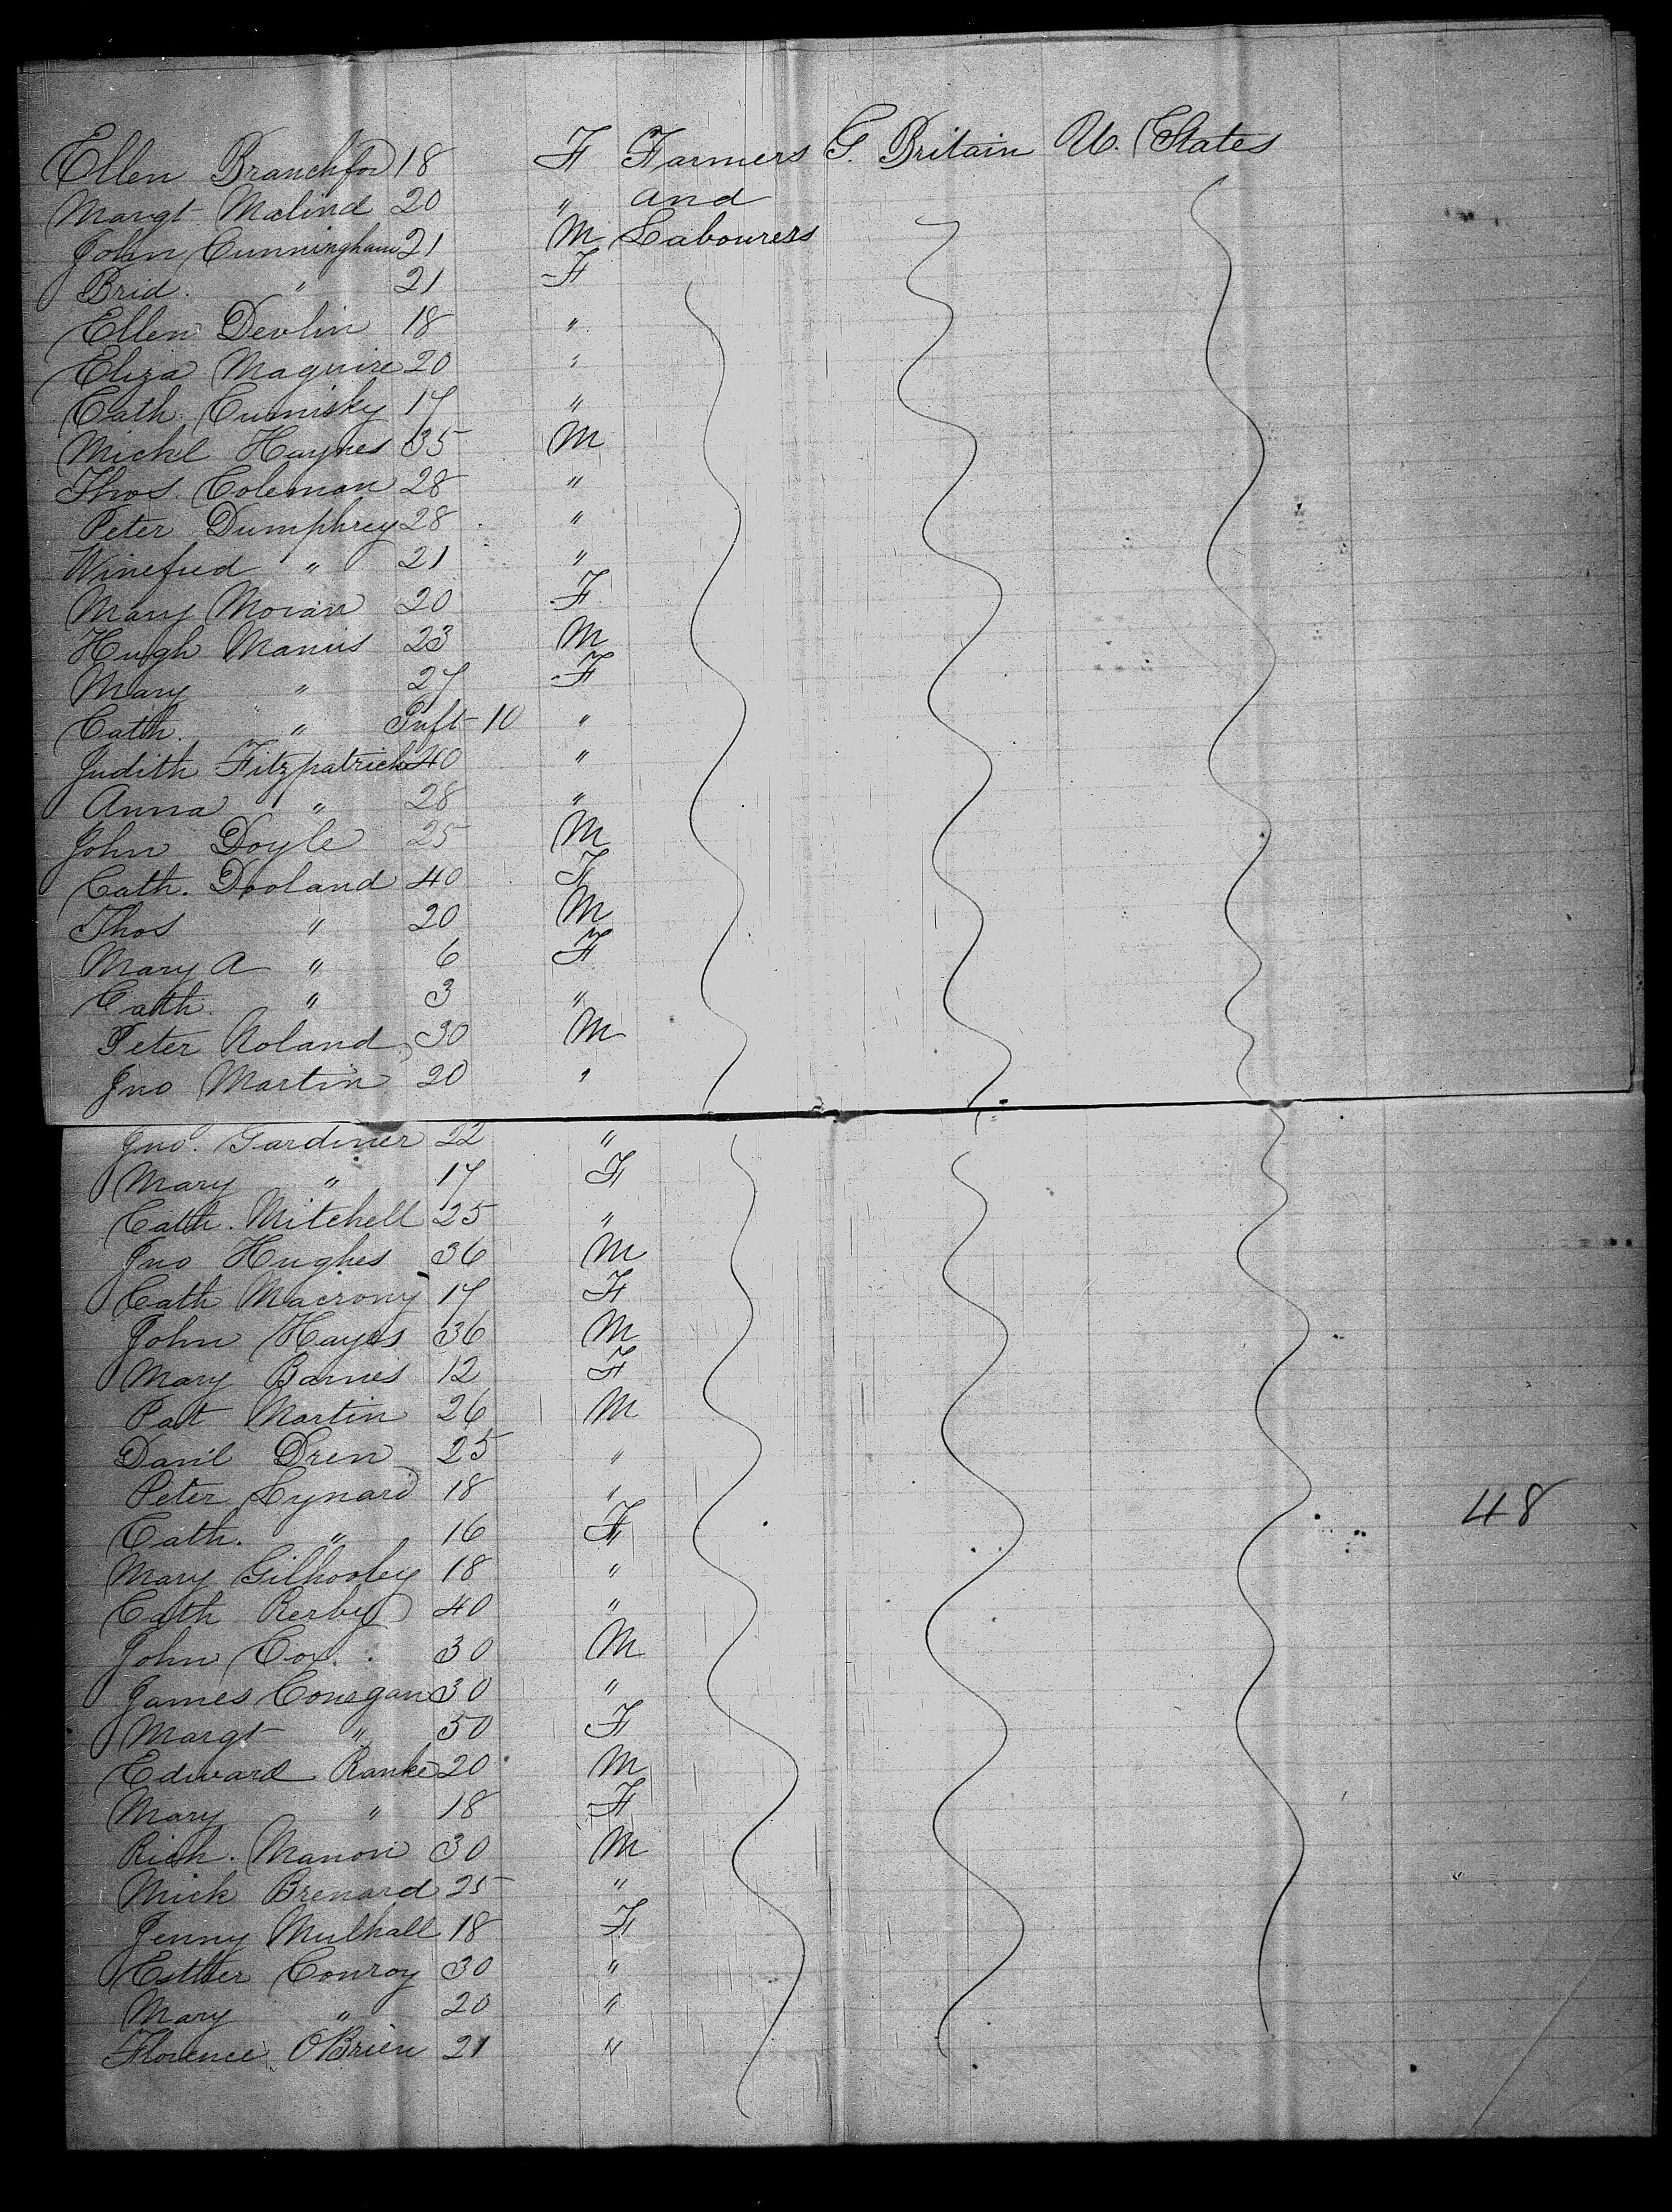 Ellen Branchfod 18 F Farmers G. Britain U. States
Margt Malind 20 " and
John Cunningham 21 M Labourers
Brid. " 21 F
Ellen Devlin 18 "
Eliza Maguire 20 "
Cath. Cumisky 17 "
Michl Haynes 35 M
Thos. Coleman 28 "
Peter Dumphrey 28 "
Winefred " 21 "
Mary Moran 20 F
Hugh Manus 23 M
Mary " 27 F
Cath. " Inft 10 "
Judith Fitzpatrick 40 "
Anna " 28 "
John Doyle 25 M
Cath. Dooland 40 F
Thos " 20 M
Mary A " 6 F
Cath. " 3 "
Peter Noland 30 M
Jno Martin 20 "
Jno. Gardiner 22 "
Mary " 17 F
Cath. Mitchell 25 "
Jno Hughes 36 M
Cath Macrony 17 F
John Hayes 36 M
Mary Barnes 12 F
Pat Martin 26 M
Danil Dren 25 "
Peter Lynard 18 " 48
Cath. " 16 F
Mary Gilhooley 18 "
Cath Rerby 40 "
John Cox. 30 M
James Conegan 30 "
Margt " 50 F
Edward Ranke 20 M
Mary " 18 F
Rich. Manon 30 M
Mick Brenard 25 "
Jenny Mulhall 18 F
Esther Conroy 30 "
Mary " 20 "
Florence OBrien 21 "